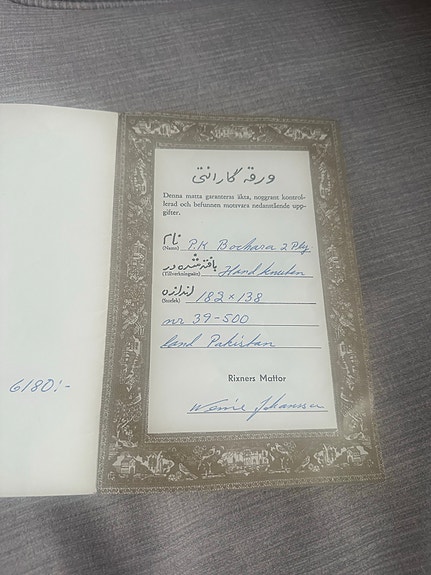 6180:-
ورقه گارانتی
Denna matta garanteras äkta, noggrant kontrol-
lerad och befunnen motsvara nedanstående upp-
gifter.
نام
(Namn) P.K Bochara 2 Ply
بافته شده در
(Tillverkningssätt) Handknuten
اندازه
(Storlek) 182 x 138
nr 39-500
land Pakistan
Rixners Mattor
Johansson